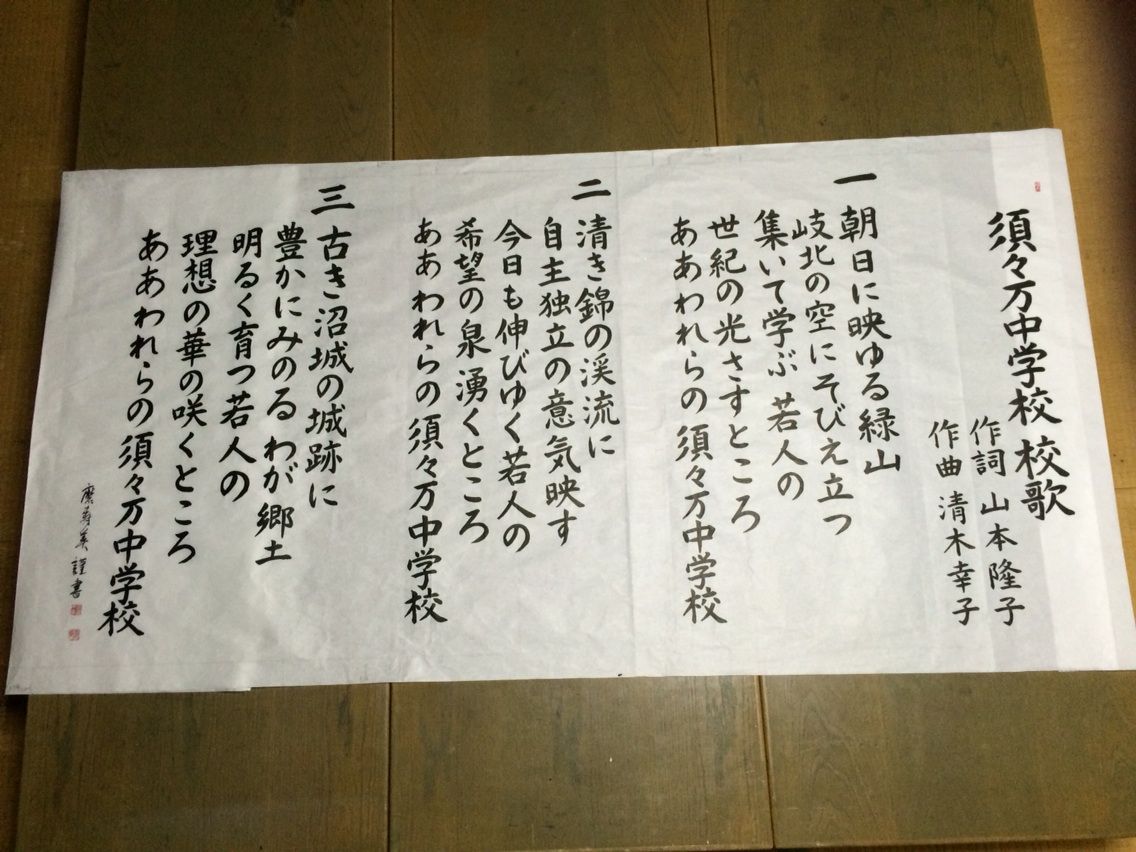 須々万中学校 校歌
作詞 山本隆子
作曲 清木幸子
一 朝日に映ゆる緑山
岐北の空にそびえ立つ
集いて学ぶ若人の
世紀の光さすところ
ああわれらの須々万中学校
二 清き錦の渓流に
自主独立の意気映す
今日も伸びゆく若人の
希望の泉湧くところ
ああわれらの須々万中学校
三 古き沼城の城跡に
豊かにみのる わが郷土
明るく育つ若人の
理想の華の咲くところ
ああわれらの須々万中学校
寿美 謹書